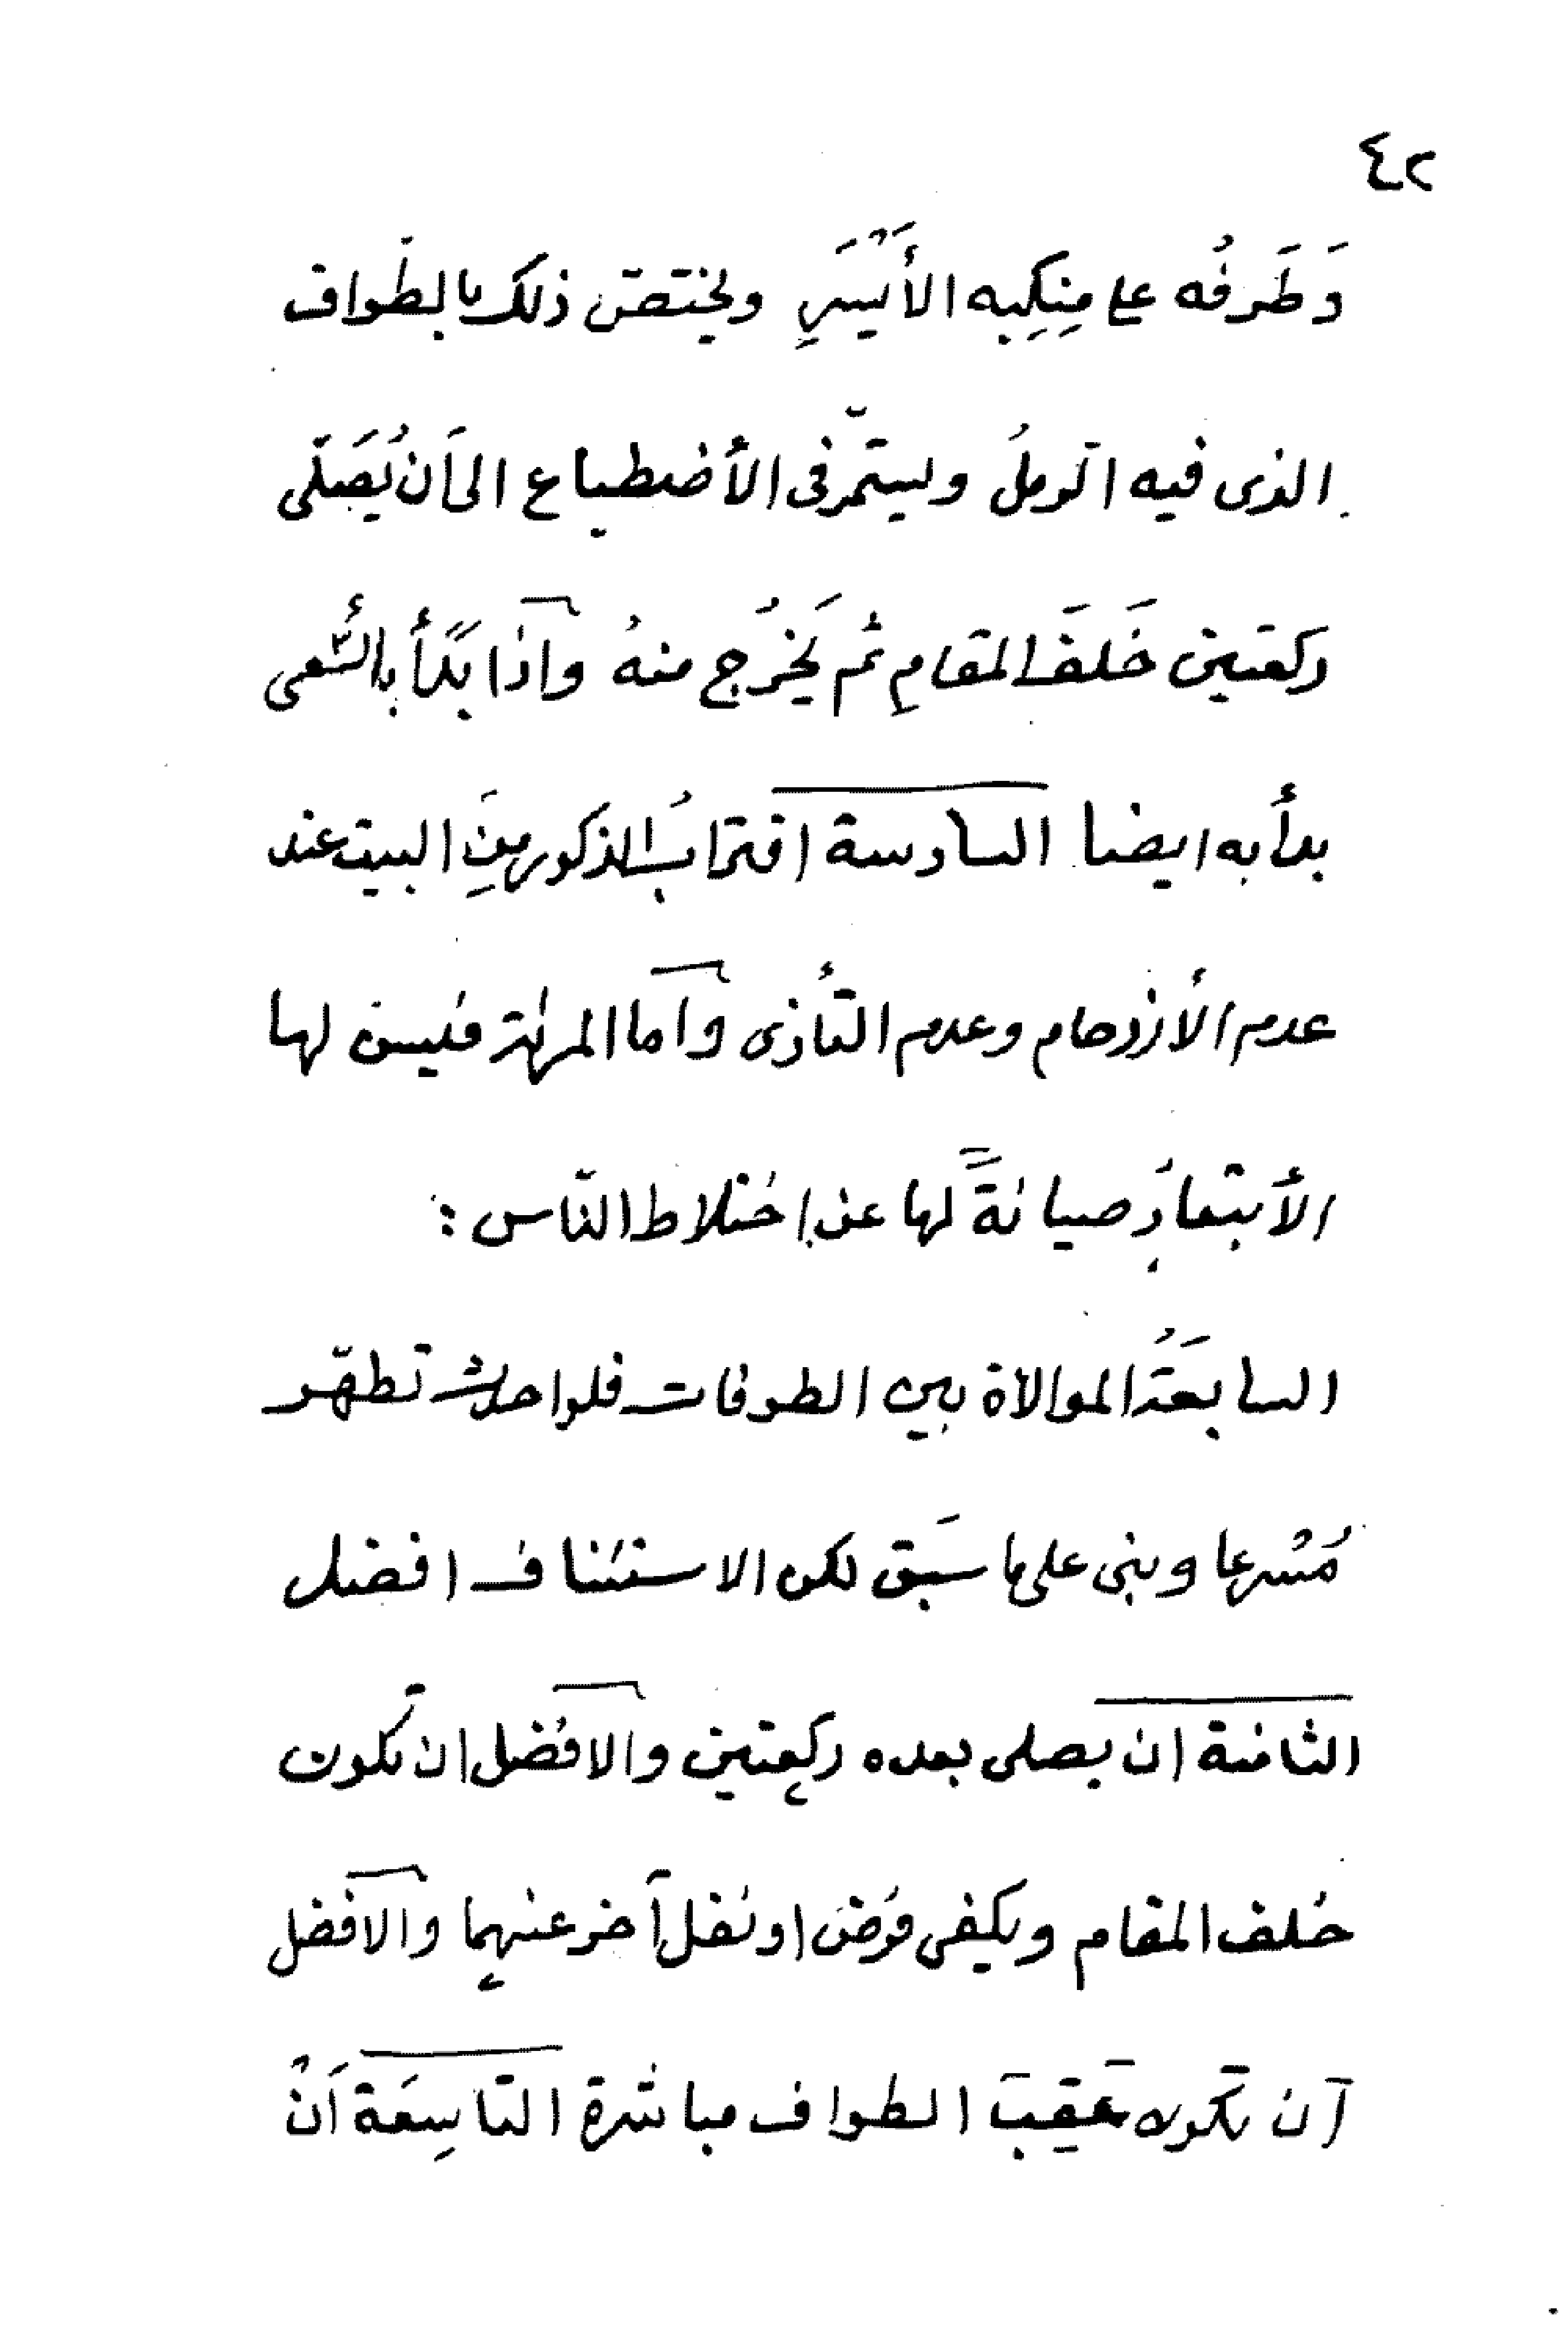 ٤٢
وَطَرَفُه على مِنكِبِه الأَيْسَرِ ويختصّ ذلك بالطّواف
الذى فيه الرملُ ويستمّر فى الأضطباع الى اَن يُصَلّى
ركعتين خَلفَ المقامِ ثم يَخرُج منهُ واذا بَدأ بالسُّعى
بدأ به ايضا السادسة اقترابُ الذكور مِنَ البيت عند
عدم الأزدحام وعدم التأذى واما المرئة فليس لها
الأبتعادُ صيانةً لها عن إختلاط النّاس :
السابعَةُ الموالاة بين الطوفات فلو احدث تطهّر
مُسْرعا وبنى على ما سَبق لكن الاستئناف افضل
الثامنة ان يصلى بعده ركعتين والافضل ان تكون
خلف المقام ويكفى فرض او نفل آخر عنهما والافضل
اَن تكون عَقِبَ الطواف مباشرة التاسِعَة اَنْ